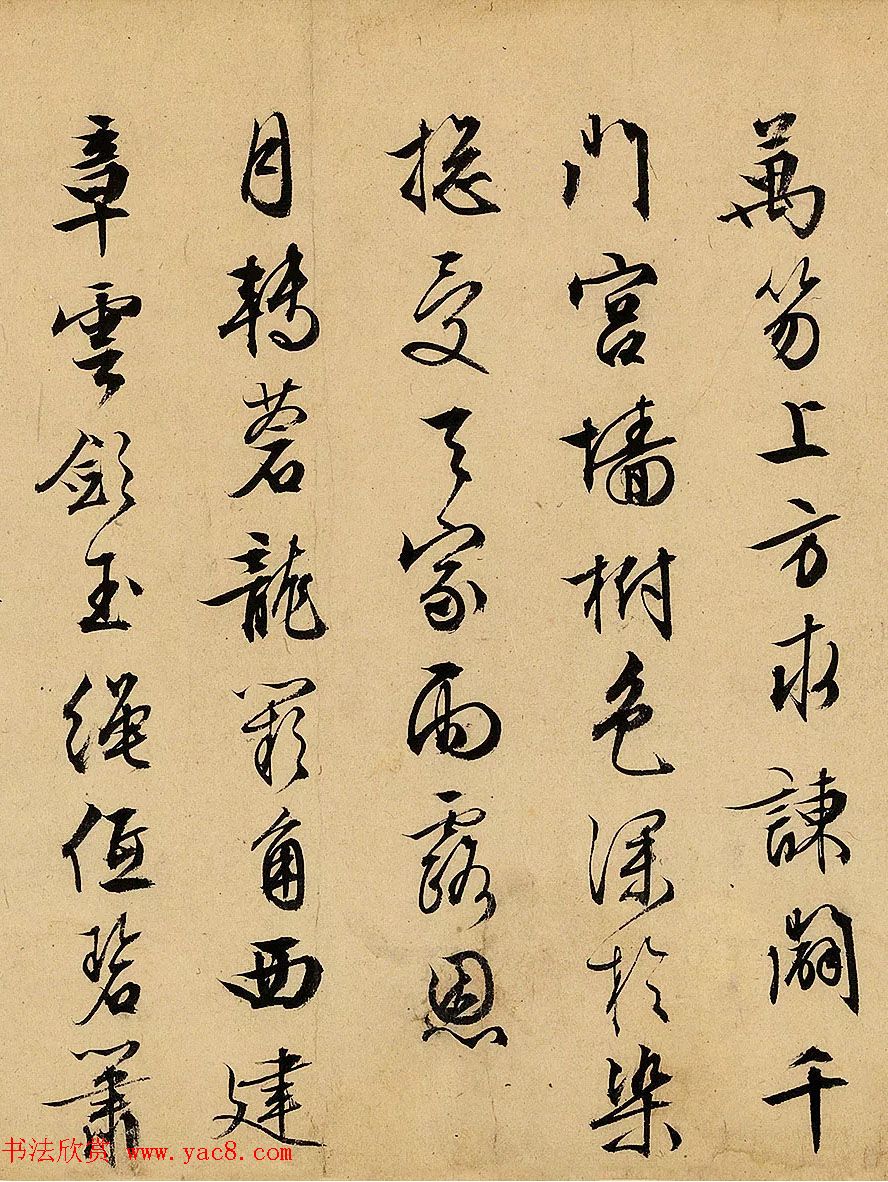 萬笏上方求諫闢千
門宮墻樹色深於染
揔受天家雨露恩
月轉蒼龍闕角西建
章雲斂玉繩低碧簫
书法欣赏 www.yac8.com